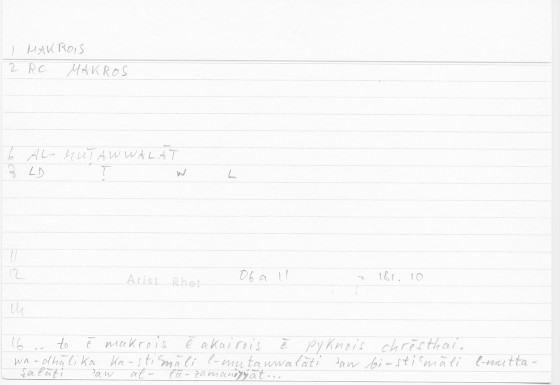 1 MAKROIS
2 RC MAKROS
6 AL-MUṬAWWALĀT
8 LD Ṭ W L
11
12 Arist Rhet 06 a 11 = 181. 10
14
16 .. to ē makrois ē akairois ē pyknois chrēsthai.
wa-dhālika ka-stiʿmāli l-muṭawwalāti ʾaw bi-stiʿmāli l-mutta-
ṣalāti ʾaw al- lā-zamaniyyāt...